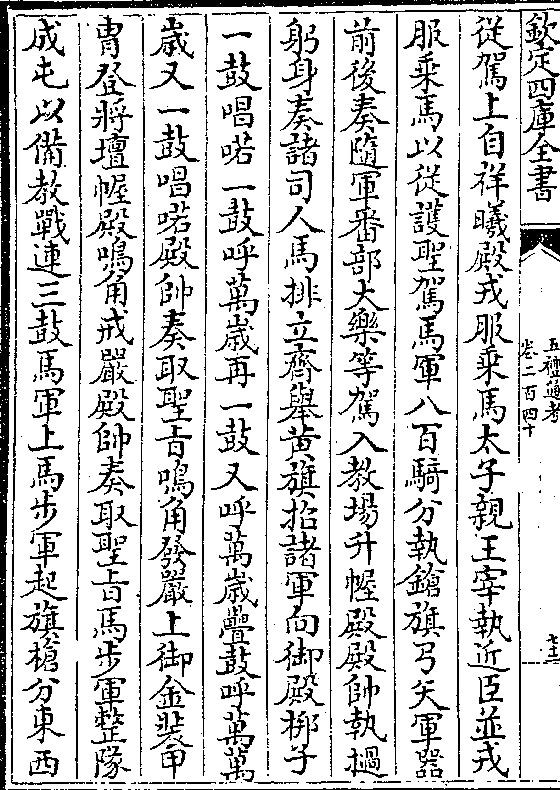 欽定四庫全書
五禮通考
卷二百四十
從駕上自祥曦殿戎服乘馬太子親王宰執近臣並戎
服乘馬以從護聖駕馬軍八百騎分執鎗旗弓矢軍器
前後奏隨軍番部大樂等駕入教場升幄殿殿帥執撾
躬身奏諸司人馬排立齊舉黃旗招諸軍向御殿梆子
一鼓唱喏一鼓呼萬歲再一鼓又呼萬歲疊鼓呼萬萬
歲又一鼓唱喏殿帥奏取聖旨鳴角發嚴上御金裝甲
胄登將壇幄殿鳴角戒嚴殿帥奏取聖旨馬步軍整隊
成屯以備教戰連三鼓馬軍上馬步軍起旗槍分東西